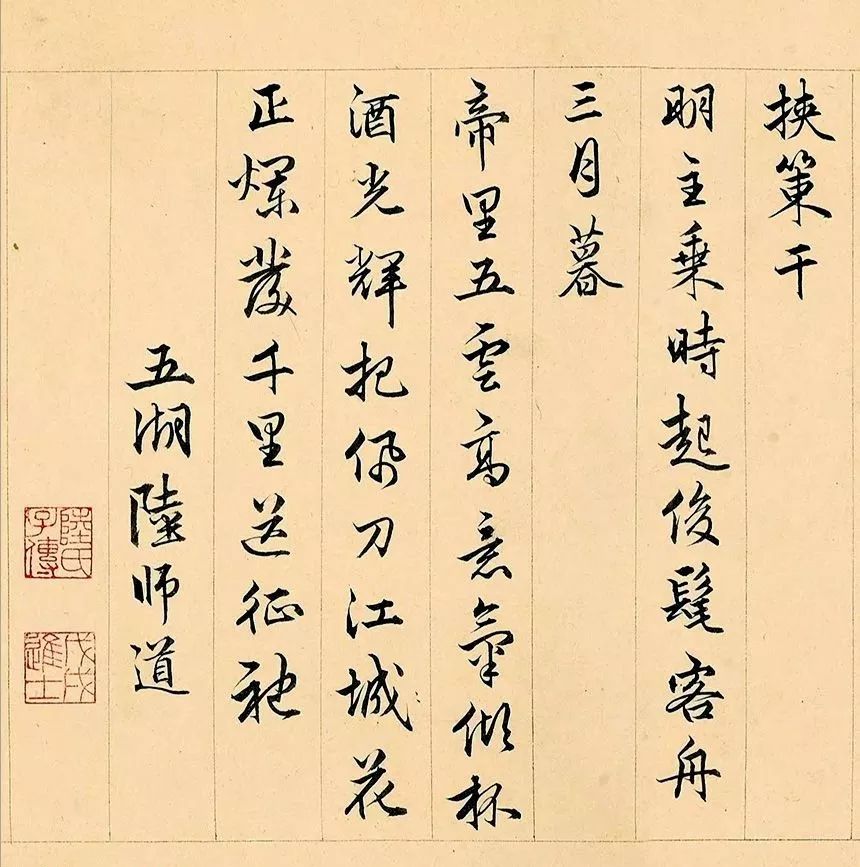 挾策干
明主乗時起俊髦客舟
三月暮
帝里五雲高意氣傾杯
酒光輝把佩刀江城花
正爛發千里送征袍
五湖陸师道
陸氏子傳
戊戌進士